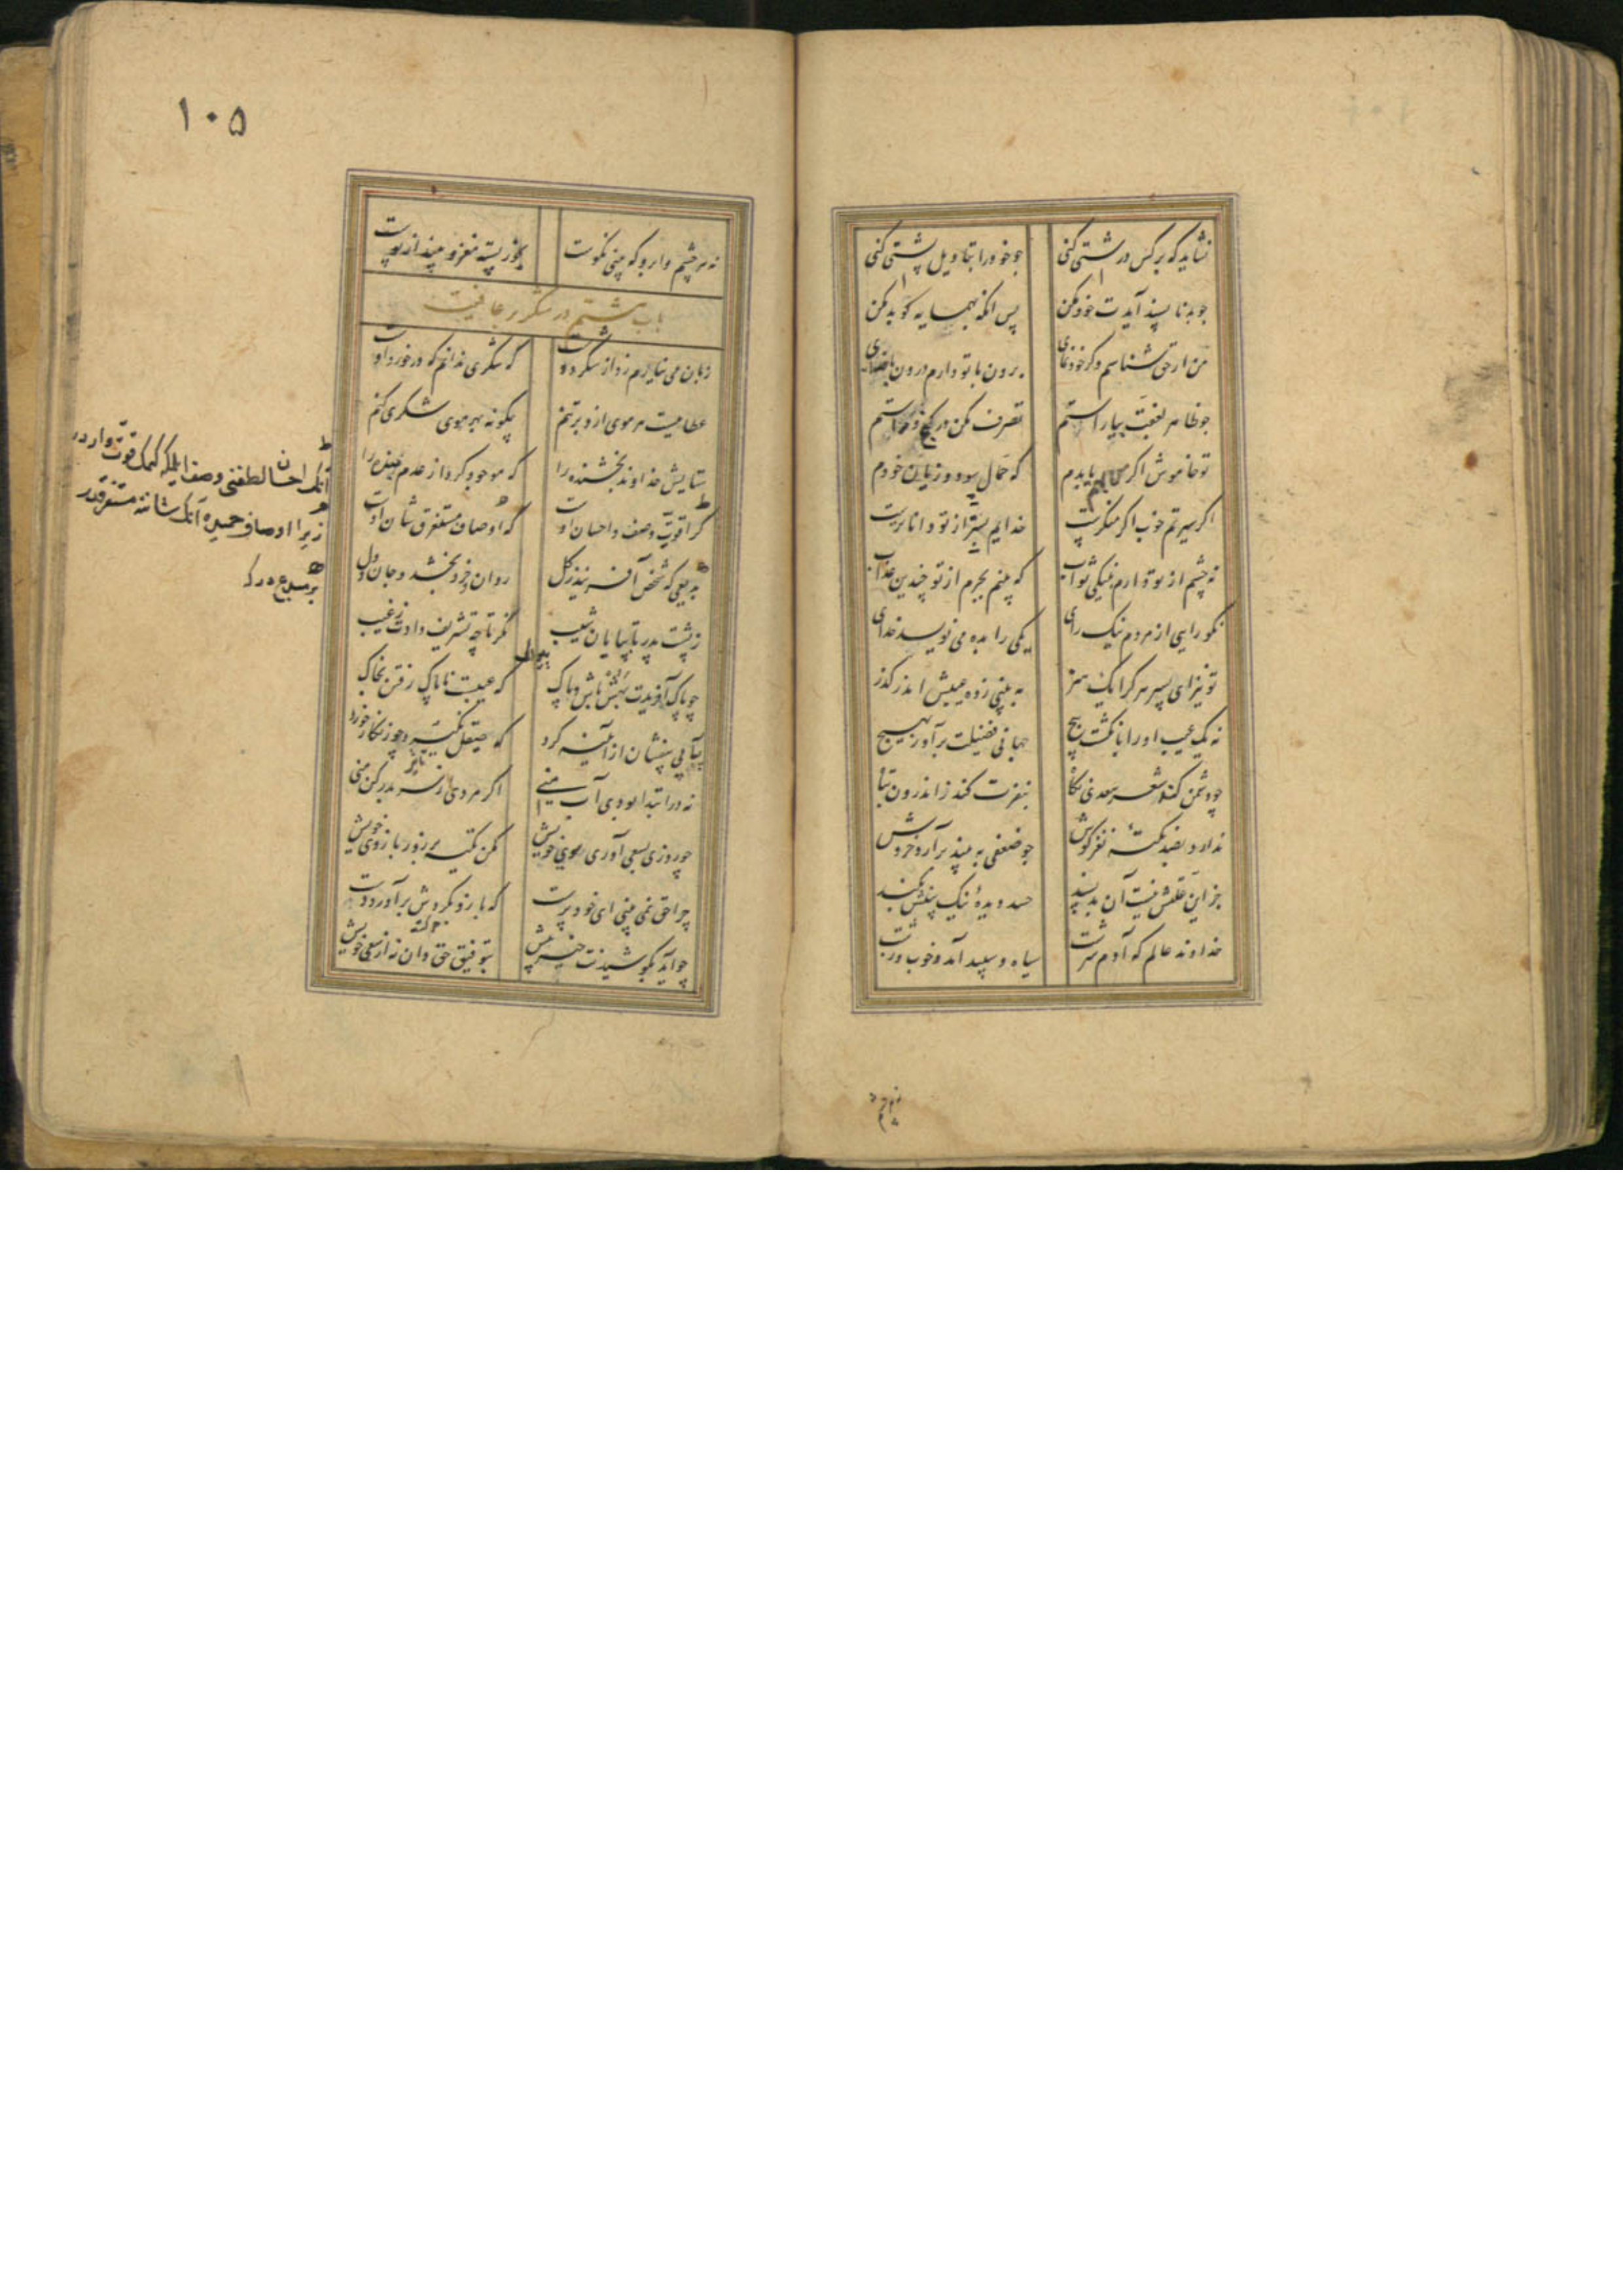 نشاید که بر کس درشتی کنی جو خود را بتاویل پشتی کنی
جو بد ناپسند آیدت خود مکن پس انکه بهمسایه کو بد مکن
من ار حق شناسم وکر خود نمای برون با تو دارم درون با خدای
جو ظاهر بعفت بیاراستم تصرف مکن در کژ و راستم
تو خاموش اکر من بهم یا بدم که حمال سود و زیان خودم
اکر سیرتم خوب اکر منکرست خدایم بسر از تو داناترست
نه چشم از تو دارم بنیکی ثواب که بینم بجرم از تو چندین عذاب
نکو رایی از مردم نیک رای یکی را بده می نویسد خدای
تو نیز ای پسر هر کرا یک هنر به بینی ز ده عیبش اندر کذر
نه یک عیب او را بانکشت پیج جهانی فضیلت برآور بهیج
چو دشمن که در شعر سعدی نکاه بنفرت کند ز اندرون تباه
ندارد بصد نکتهٔ نغز کوش جو ضعفی به بیند برآرد خروش
جز این علتش نیست آن بد پسند حسد دیدهٔ نیک بینش بکند
خداوند عالم که آدم سرشت سیاه و سپید آمد و خوب و زشت
۱۰۵
نه هر چشم وابرو که بینی نکوست بخور پسته مغز و بینداز پوست
باب هشتم در شکر بر عافیت
زبان می نیارم زد از شکر دوست که شکری ندانم که در خورد اوست
عطاییست هر موی ازو بر تنم چکونه بهر موی شکری کنم
ستایش خداوند بخشنده را که موجود کرد از عدم بنده را
کرا قوت وصف احسان اوست که اوصاف مستغرق شان اوست
بدیعی که شخص آفریند ز کل روان و خرد بخشد و جان و دل
ز پشت پدر تا بپایان شیب نکر تا چه تشریف دادت ز غیب
چو پاک آفریدت بهش باش و پاک که عیبست ناپاک رفتن بخاک
پیاپی بیفشان از آیینه کرد که صیقل نکیرد چو زنکار خورد
نه در ابتدا بودی آب منی اکر مردی از سر بدر کن منی
چو روزی بسعی آوری سوی خویش مکن تکیه بر زور بازوی خویش
چرا حق نمی بینی ای خود پرست که بازو بکردش برآورد دست
چو آید بکوشیدنت خیر پیش بتوفیق حق دان نه از سعی خویش
انک احسان لطفنی وصف ایلمکه کمک قوت وار در
زیرا اوصاف حمیده انک شاننه مستغرقدر